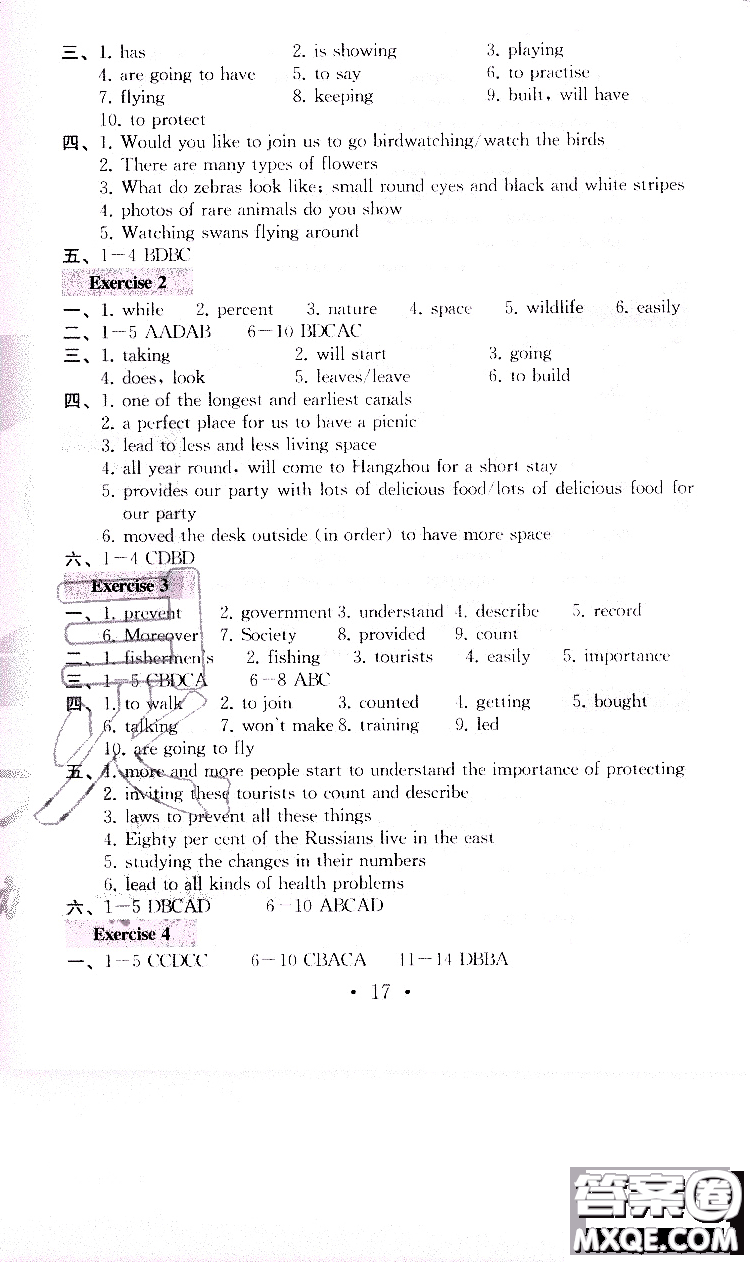 三、1. has 2. is showing 3. playing
4. are going to have 5. to say 6. to practise
7. flying 8. keeping 9. built, will have
10. to protect
四、1. Would you like to join us to go birdwatching/watch the birds
2. There are many types of flowers
3. What do zebras look like; small round eyes and black and white stripes
4. photos of rare animals do you show
5. Watching swans flying around
五、1—4 BDBC
Exercise 2
一、1. while 2. percent 3. nature 4. space 5. wildlife 6. easily
二、1—5 AADAB 6—10 BDCAC
三、1. taking 2. will start 3. going
4. does, look 5. leaves/leave 6. to build
四、1. one of the longest and earliest canals
2. a perfect place for us to have a picnic
3. lead to less and less living space
4. all year round, will come to Hangzhou for a short stay
5. provides our party with lots of delicious food/lots of delicious food for
our party
6. moved the desk outside (in order) to have more space
六、1—4 CDBD
Exercise 3
一、1. prevent 2. government 3. understand 4. describe 5. record
6. Moreover 7. Society 8. provided 9. count
二、1. fishermen's 2. fishing 3. tourists 4. easily 5. importance
三、1—5 CBDCA 6—8 ABC
四、1. to walk 2. to join 3. counted 4. getting 5. bought
6. talking 7. won't make 8. training 9. led
10. are going to fly
五、1. more and more people start to understand the importance of protecting
2. inviting these tourists to count and describe
3. laws to prevent all these things
4. Eighty per cent of the Russians live in the east
5. studying the changes in their numbers
6. lead to all kinds of health problems
六、1—5 DBCAD 6—10 ABCAD
Exercise 4
一、1—5 CCDCC 6—10 CBACA 11—14 DBBA
· 17 ·
答案圈
MXQE.COM